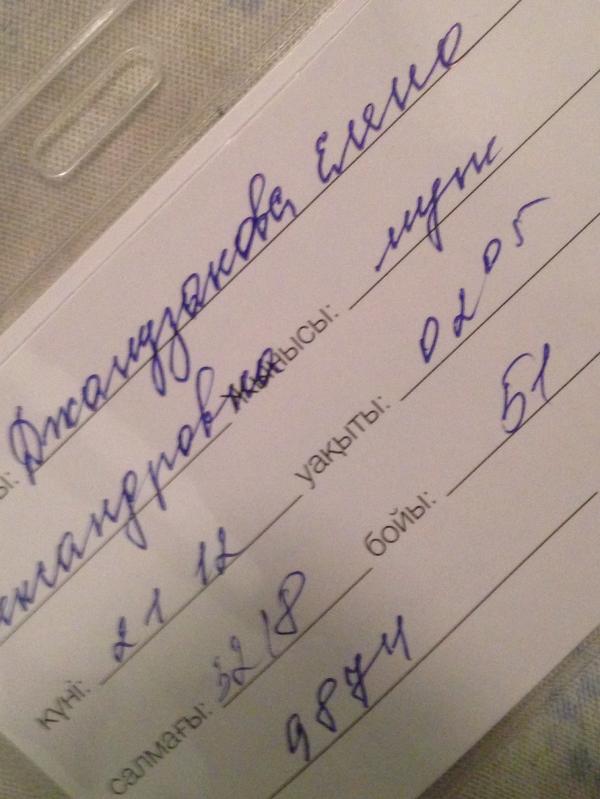 ы: Джанузакова Елена
ександровна жынысы: муж
күні: 21 12 уақыты: 02 05
салмағы: 3218 бойы: 51
9874